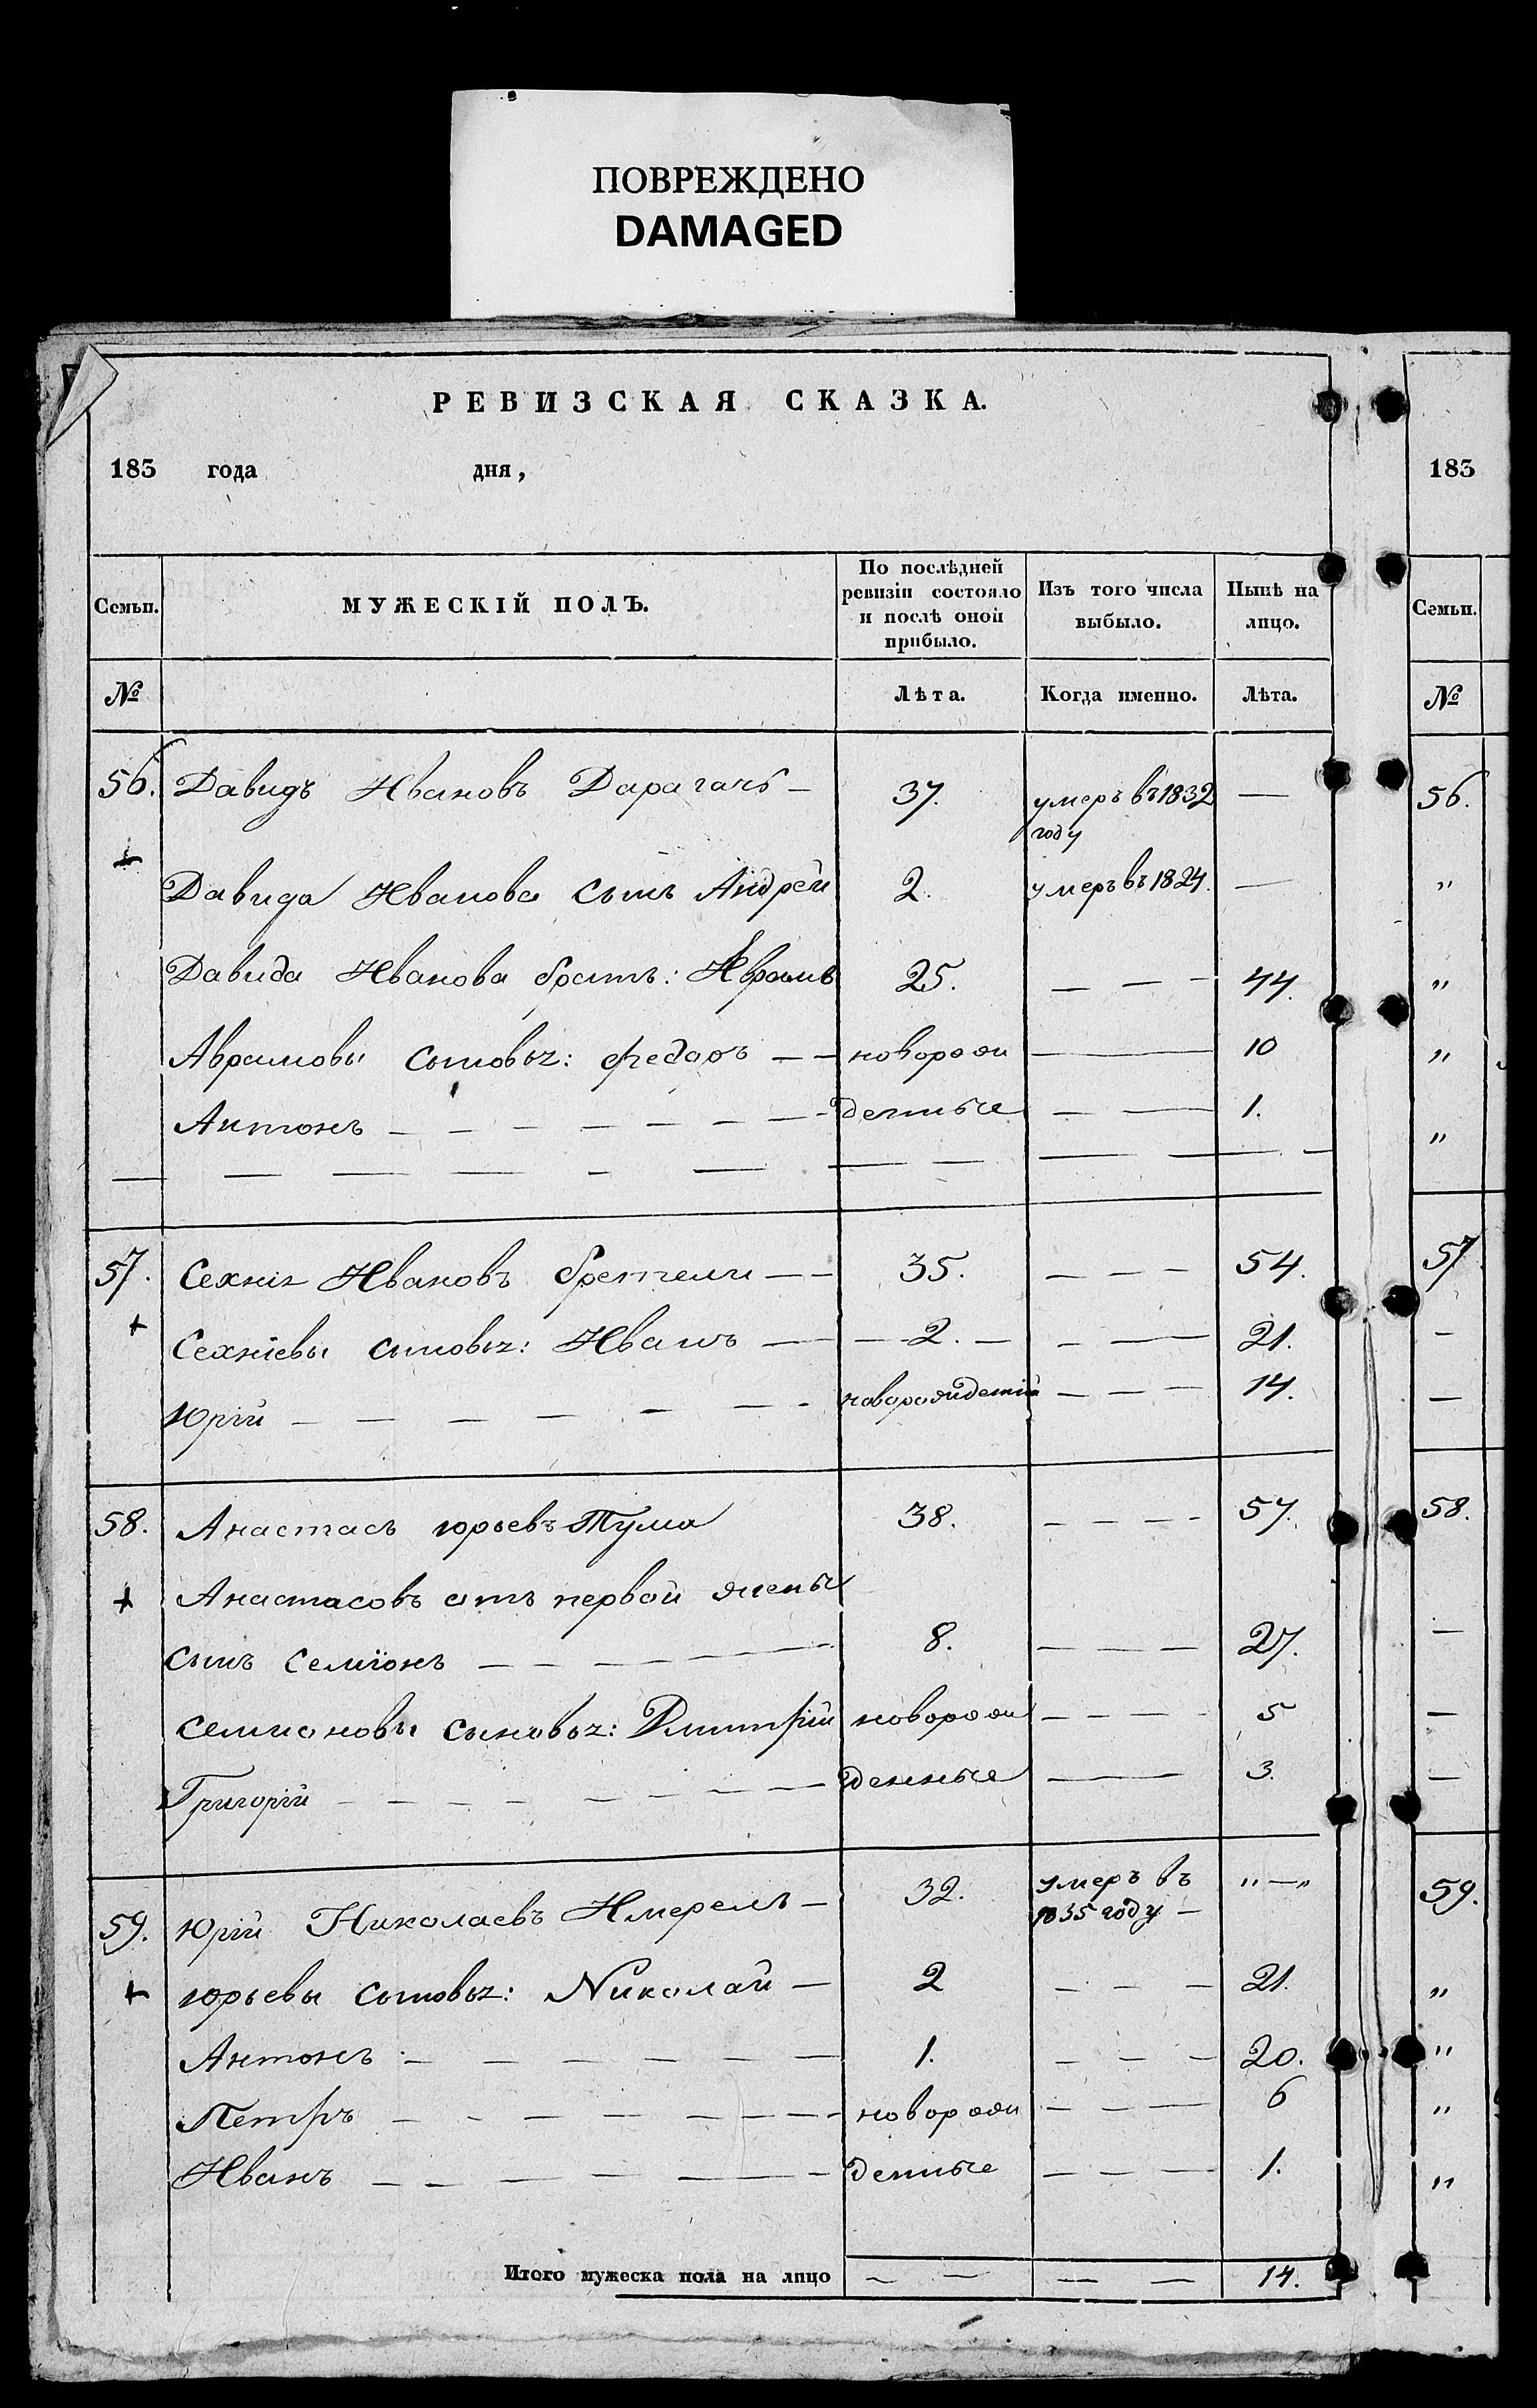 ПОВРЕЖДЕНО
DAMAGED
РЕВИЗСКАЯ СКАЗКА.
183 года дня,
183
Семьи. МУЖЕСКІЙ ПОЛЪ. По послѣдней ревизіи состояло и послѣ оной прибыло. Изъ того числа выбыло. Нынѣ на лицо. Семьи.
№ Лѣта. Когда именно. Лѣта. №
56. Давидъ Ивановъ Дарагачъ — 37. умеръ въ 1832 году — 56.
Давида Иванова сынъ Андрей 2. умеръ въ 1824. — "
Давида Иванова братъ: Аврамъ 25. — — - 44. "
Аврамовы сыновьа: Федоръ — — новорож — 10 "
Антонъ — — — — — — — денные — — 1. "
57. Сехніа Ивановъ — — 35. — — — 54. 57
Сехніевы сыновьа: Иванъ — — 2. — — — 21. —
Юрій — — — — — - новорожденій — — — 14. —
58. Анастасъ Юрьевъ Тума 38. — — — - 57. 58.
Анастасовъ отъ первой жены
сынъ Семіонъ — — — — — 8. — — — 27. —
Семионовы сыновьа: Дмитрій новорож — — — 5 —
Григорій — — — — — — — денные — — 3. —
59. Юрій Николаевъ Имерелъ — 32. умеръ въ 1835 году — " — " 59.
Юрьевы сыновьа: Николай — 2 — — — 21. "
Антонъ — — — — — — 1. — — — 20. "
Петръ — — — — — — — новорож — — — 6 "
Иванъ — — — — — — денные — — — 1. "
Итого мужеска пола на лицо — — — — 14.